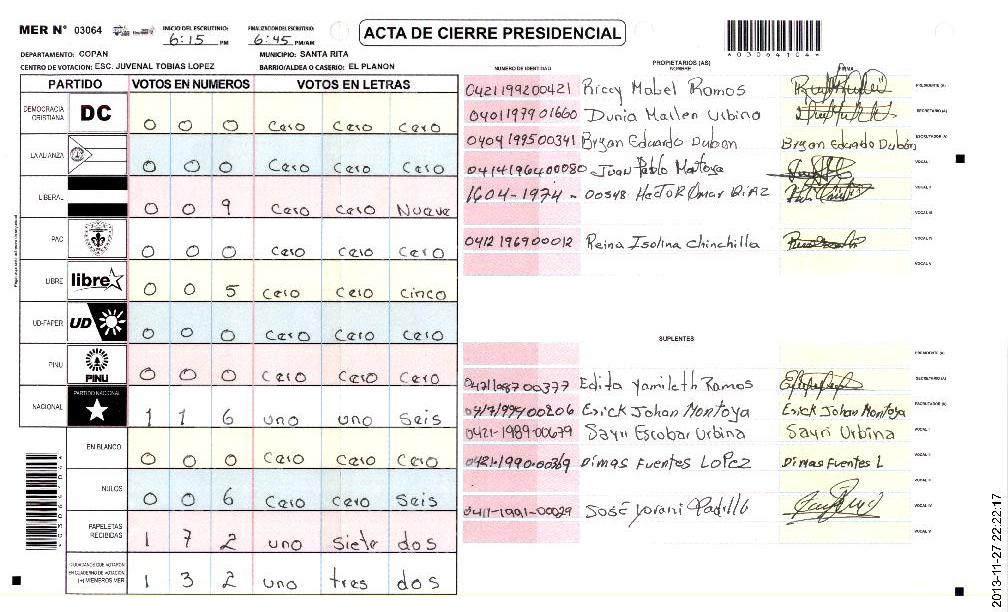 MER N° 03064
INICIO DEL ESCRUTINIO: 6:15 PM
FINALIZACION DEL ESCRUTINIO: 6:45 PM/AM
ACTA DE CIERRE PRESIDENCIAL
*03064104*
DEPARTAMENTO: COPAN
MUNICIPIO: SANTA RITA
CENTRO DE VOTACION: ESC. JUVENAL TOBIAS LOPEZ
BARRIO/ALDEA O CASERIO: EL PLANON
PARTIDO VOTOS EN NUMEROS VOTOS EN LETRAS
DEMOCRACIA CRISTIANA DC 0 0 0 Cero Cero Cero
LA ALIANZA 0 0 0 Cero Cero Cero
LIBERAL 0 0 9 Cero Cero Nueve
PAC 0 0 0 Cero Cero Cero
LIBRE libre 0 0 5 Cero Cero Cinco
UD-FAPER UD 0 0 0 Cero Cero Cero
PINU PINU 0 0 0 Cero Cero Cero
NACIONAL PARTIDO NACIONAL 1 1 6 uno uno Seis
EN BLANCO 0 0 0 Cero Cero Cero
NULOS 0 0 6 Cero Cero Seis
PAPELETAS RECIBIDAS 1 7 2 uno Siete dos
CIUDADANOS QUE VOTARON EN CUADERNO DE VOTACION (+) MIEMBROS MER 1 3 2 uno tres dos
PROPIETARIOS (AS)
NUMERO DE IDENTIDAD NOMBRE FIRMA
0421199200421 Riccy Mabel Ramos PRESIDENTE (A)
0401197901660 Dunia Marlen Urbina SECRETARIO (A)
0404199500341 Bryan Eduardo Dubon Bryan Eduardo Dubón ESCRUTADOR (A)
0414196400080 Juan Pablo Montoya VOCAL I
1604-1974-00548 HecTOR Omar DíAZ VOCAL II
VOCAL III
0412196900012 Reina Isolina Chinchilla VOCAL IV
VOCAL V
SUPLENTES
PRESIDENTE (A)
0421198700377 Edita Yamileth Ramos SECRETARIO (A)
Erick Johan Montoya Erick Johan Montoya ESCRUTADOR (A)
0421-1989-00679 Sayri Escobar Urbina Sayri Urbina VOCAL I
0421-1990-00369 Dimas Fuentes Lopez Dimas Fuentes L VOCAL II
VOCAL III
0411-1991-00029 JOSÉ Yorani Padilla VOCAL IV
VOCAL V
2013-11-27 22:22:17